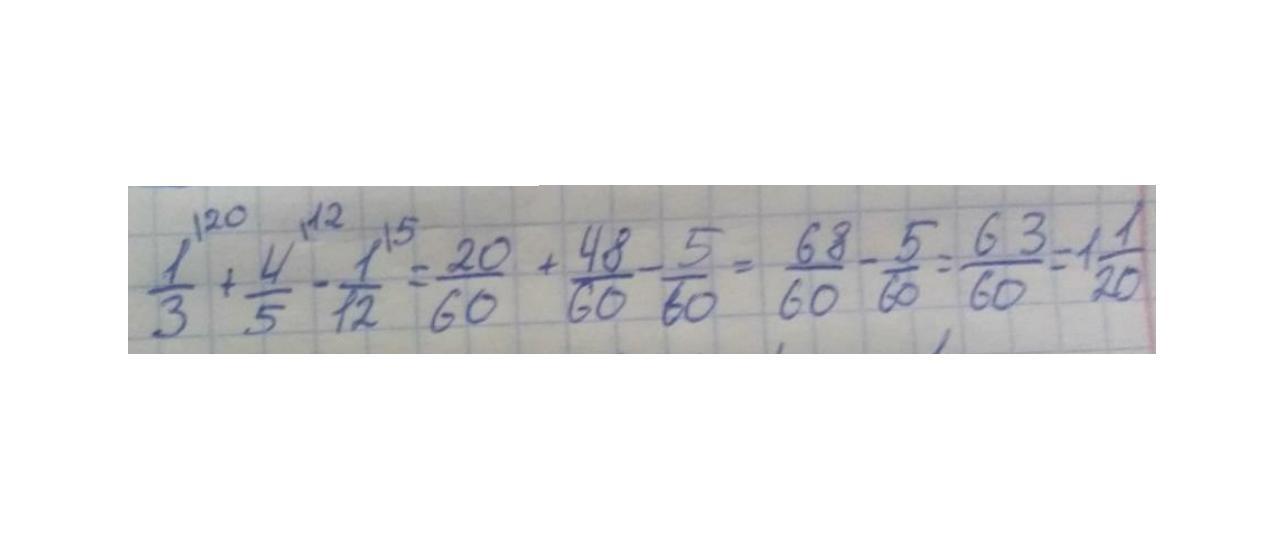 1/3 \20 + 4/5 \12 - 1/12 \5 = 20/60 + 48/60 - 5/60 = 68/60 - 5/60 = 63/60 = 1 1/20